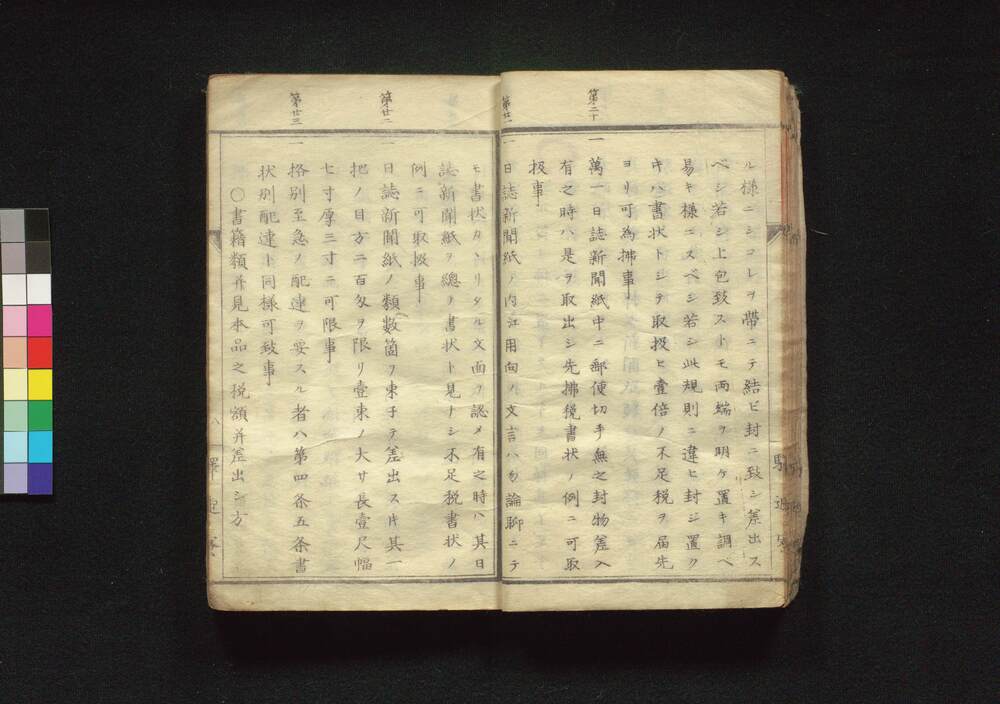 ル様ニシコレヲ帯ニテ結ビ封ニ致シ差出ス
ベシ若シ上包致ストモ両端ヲ明ケ置キ調ベ
易キ様ニスベシ若シ此規則ニ違ヒ封ジ置ク
キハ書状トシテ取扱ヒ壹倍ノ不足税ヲ届先
ヨリ可為拂事
第二十
一 萬一日誌新聞紙中ニ郵便切手無之封物差入
有之時ハ是ヲ取出シ先拂税書状ノ例ニ可取
扱事
第廿一
一 日誌新聞紙ノ内江用向ノ文言ハ勿論聊ニテ
モ書状カヽリタル文面ヲ認メ有之時ハ其日
誌新聞紙ヲ總テ書状ト見ナシ不足税書状ノ
例ニ可取扱事
第廿二
一 日誌新聞紙ノ類数箇ヲ束子テ差出ス片其一
把ノ目方二百匁ヲ限リ壹束ノ大サ長壹尺幅
七寸厚三寸ニ可限事
第廿三
一 格別至急ノ配達ヲ要スル者ハ第四条五条書
状別配達ト同様可致事
○書籍類并見本品之税額并差出シ方
八
驛逓寮